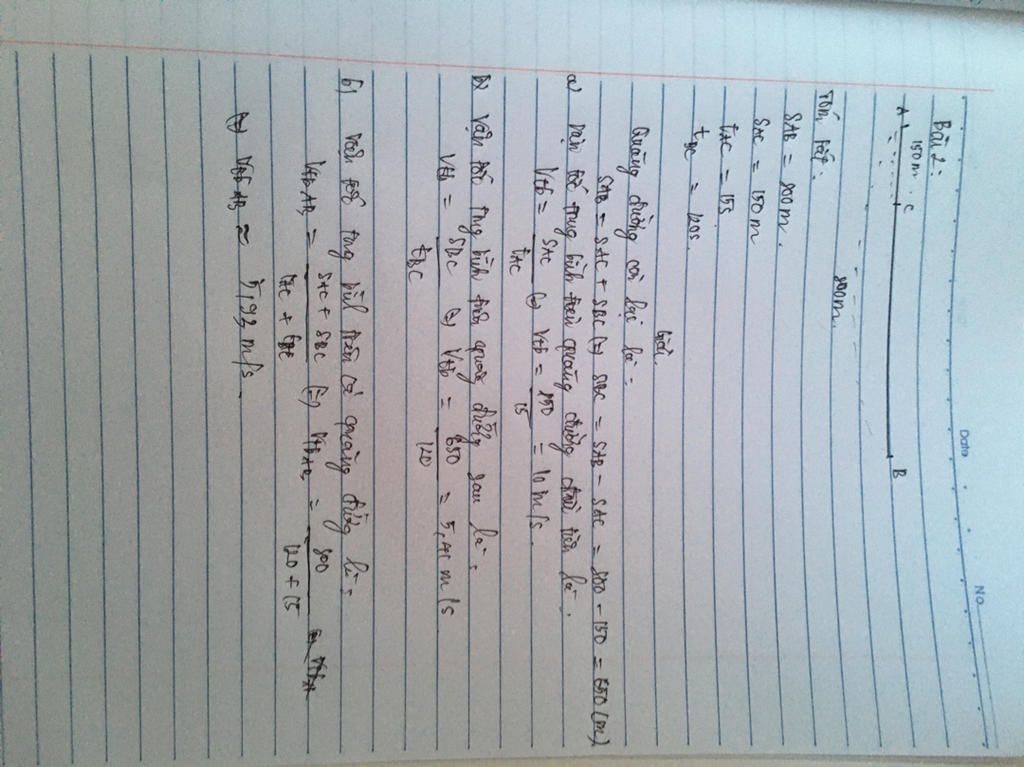 Date
No.
Bài 2:
150m
A C B
800m.
Tóm tắt:
SAB = 800m.
SAC = 150m
tAC = 15s
tBC = 120s
Giải.
Quãng đường còn lại là:
SAB = SAC + SBC (=) SBC = SAB - SAC = 800 - 150 = 650 (m)
a) Vận tốc trung bình trên quãng đường đầu tiên là:
Vtb = SAC / tAC (=) Vtb = 150 / 15 = 10 m/s.
Vận tốc tng bình trên quãng đường sau là:
Vtb = SBC / tBC (=) Vtb = 650 / 120 = 5,41 m/s
b) Vận tốc tng bình trên cả quãng đường là:
VtbAB = SAC + SBC / tAC + tBC (=) VtbAB = 800 / 120 + 15
(=) VtbAB ≈ 5,93 m/s.